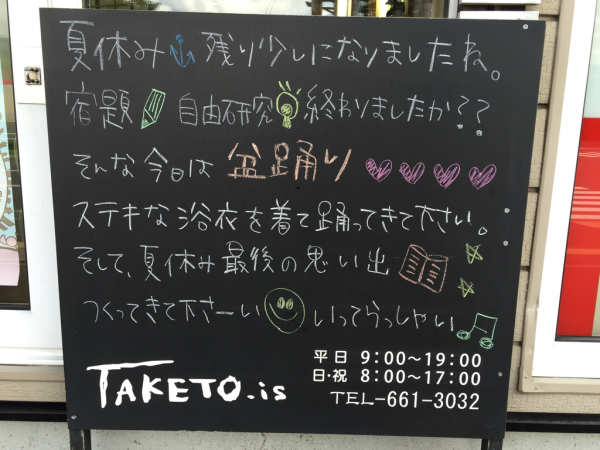 夏休み残り少しになりましたね。
宿題 自由研究 終わりましたか??
そんな今日は 盆踊り
ステキな浴衣を着て踊ってきて下さい。
そして、夏休み最後の思い出
つくってきて下さーい いってらっしゃい
TAKETO.is
平日 9:00~19:00
日・祝 8:00~17:00
TEL-661-3032